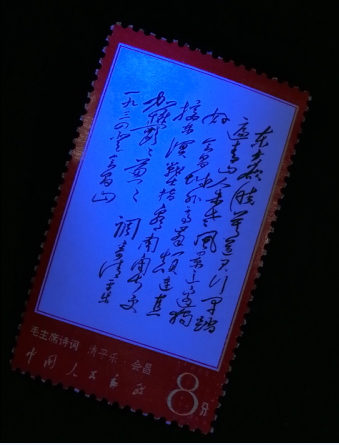 东方欲晓莫道君行早踏
遍青山人未老风景这边独
好 会昌城外高峰颠连直
接东溟战士指看南粤更
加郁々葱々 调寄清平乐
一九三四登会昌山
毛主席诗词 清平乐 会昌
中国人民邮政 8分